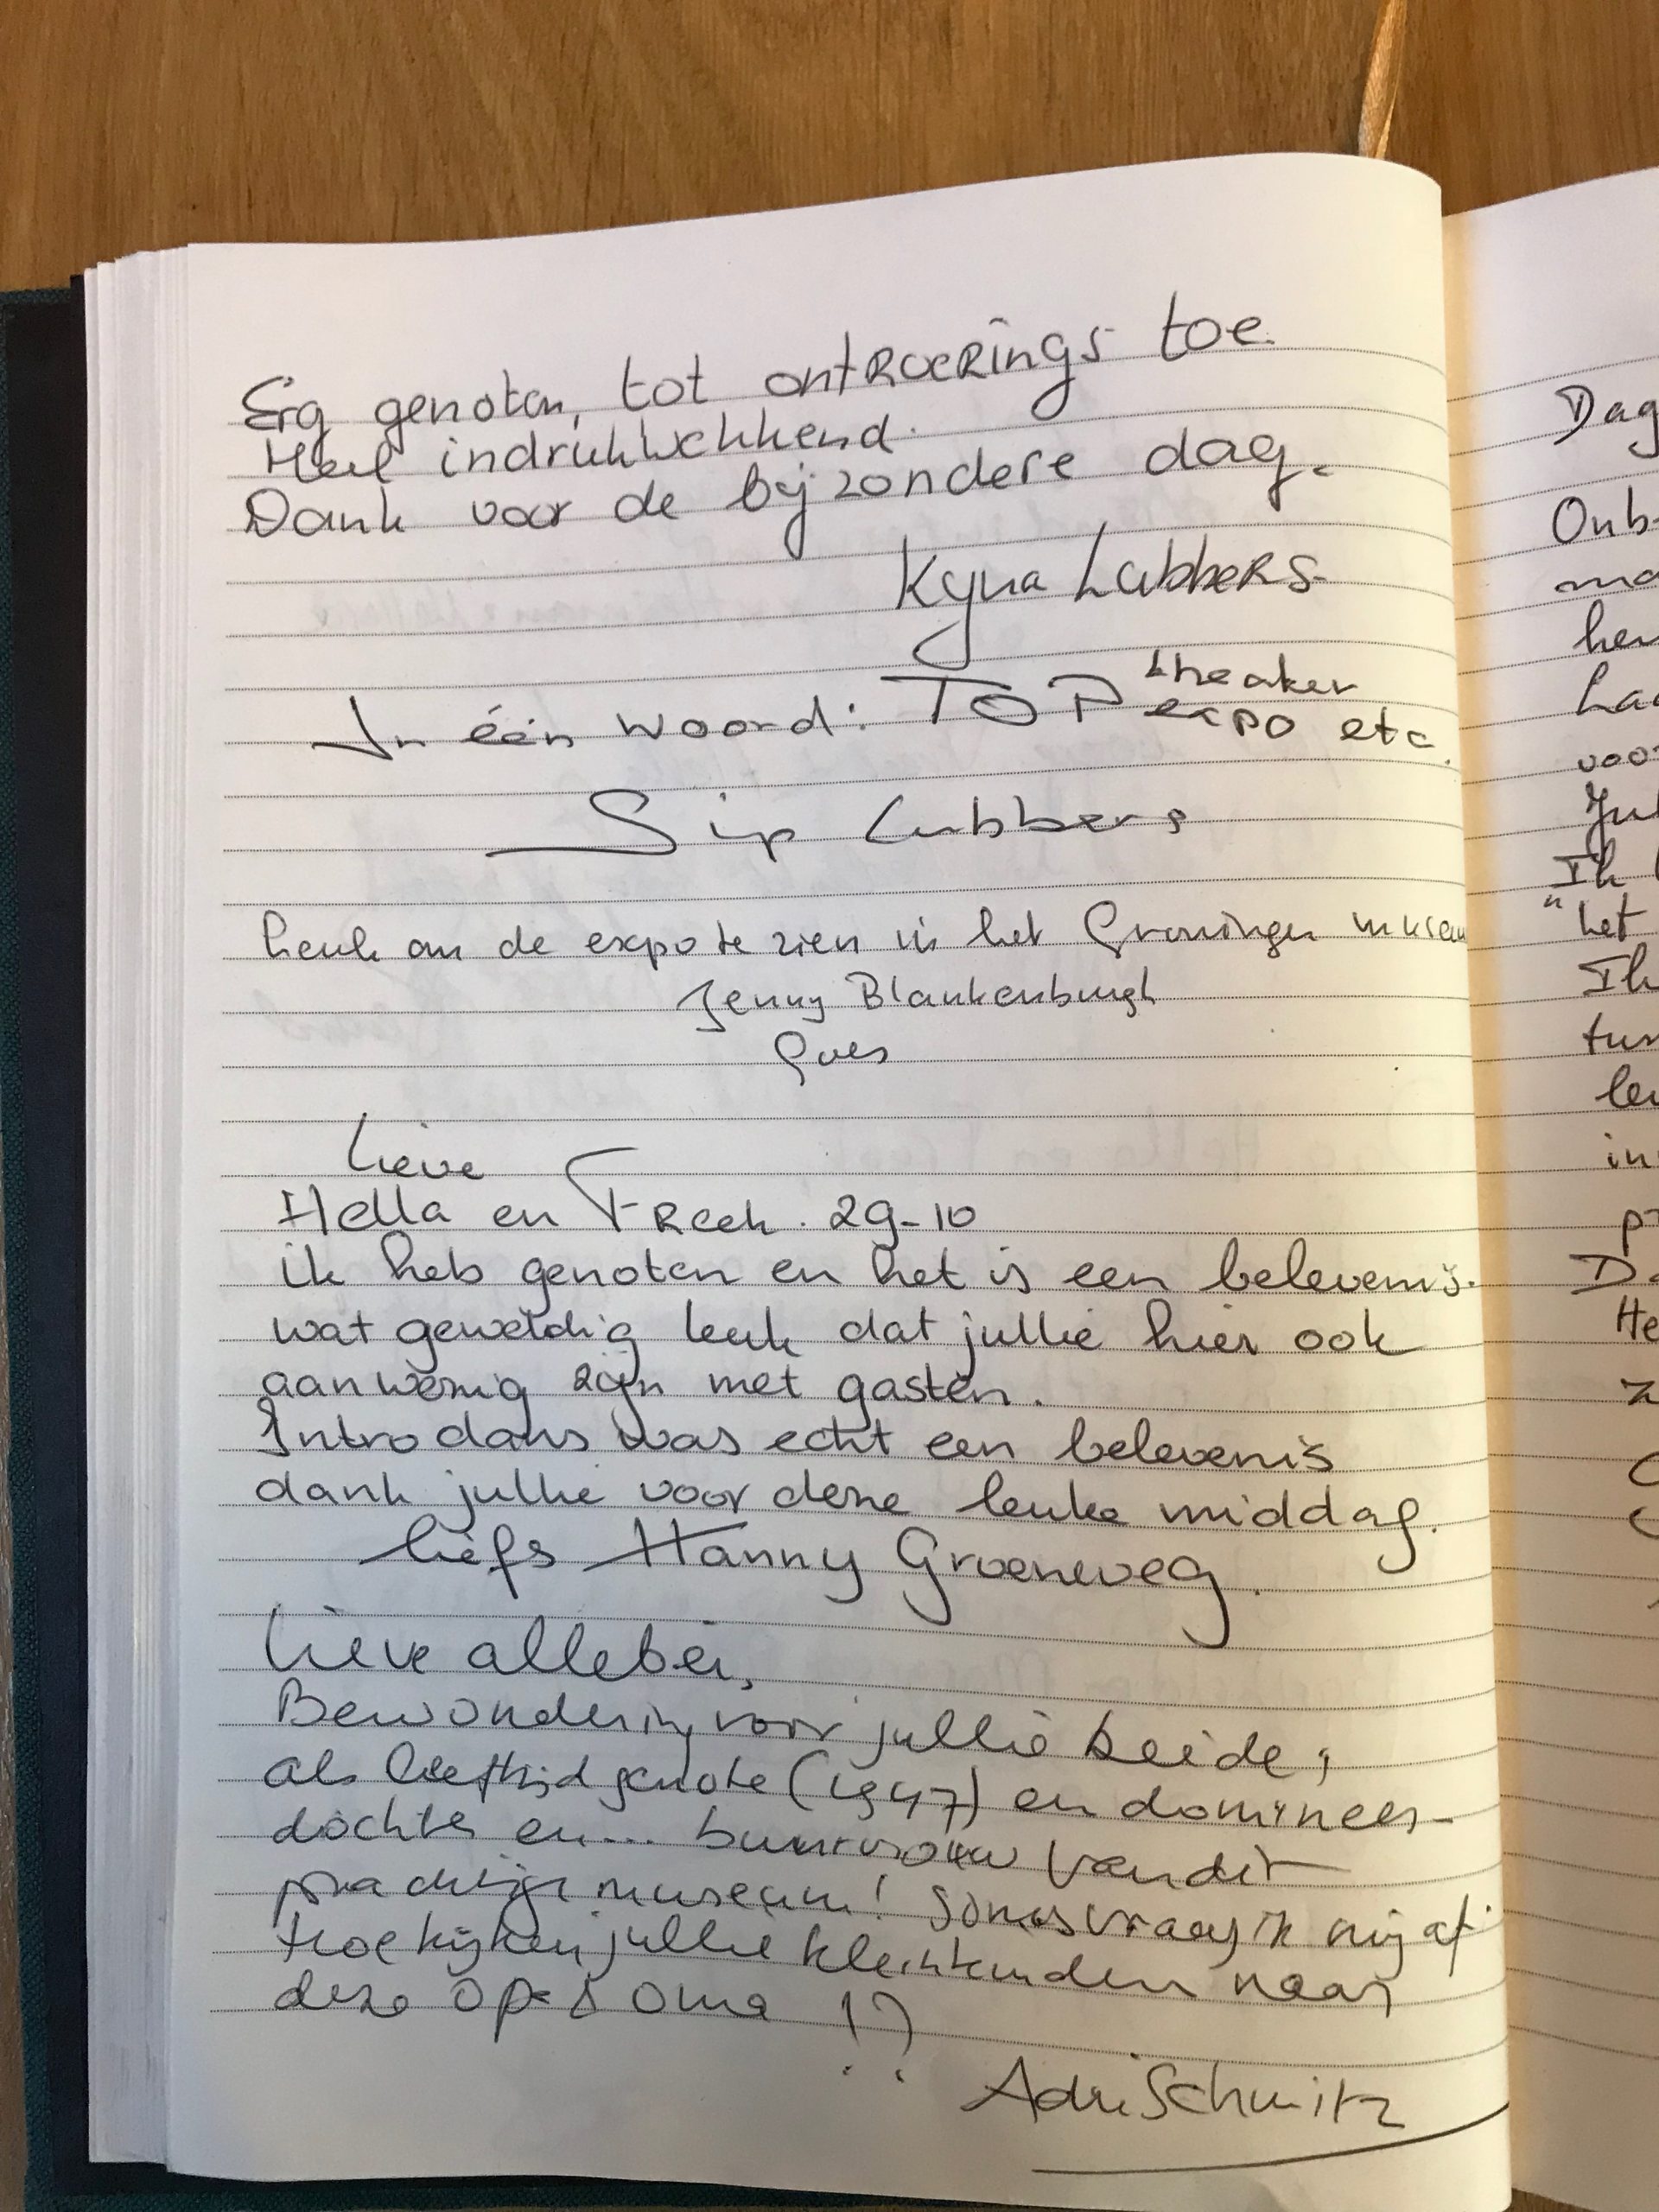 Erg genoten, tot ontroerings toe.
Heel indrukwekkend.
Dank voor de bijzondere dag.
Kyna Lubbers
In één woord: TOP theater
expo etc.
Sip Lubbers
Leuk om de expo te zien in het Groninger museum
Jenny Blankenburgh
Goes
Lieve
Hella en Freek. 29-10
ik heb genoten en het is een belevenis.
wat geweldig leuk dat jullie hier ook
aanwezig zijn met gasten.
Introdans was echt een belevenis
dank jullie voor deze leuke middag.
liefs Hanny Groeneweg.
Lieve allebei,
Bewondering voor jullie beide,
als leeftijdgenote (1947) en dominees-
dochter en... buurvrouw van dit
prachtige museum! Soms vraag ik mij af
Hoe kijken jullie kleinkinderen naar
deze op- & oma !?
Adri Schmitz
Dag
Onb-
ma
her
Laa
voo
Jul
Ik
"het
Ik
tun
len
in
pr
Da
He
z